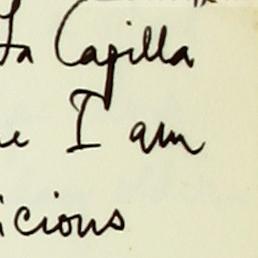 La Capilla
I am
icious